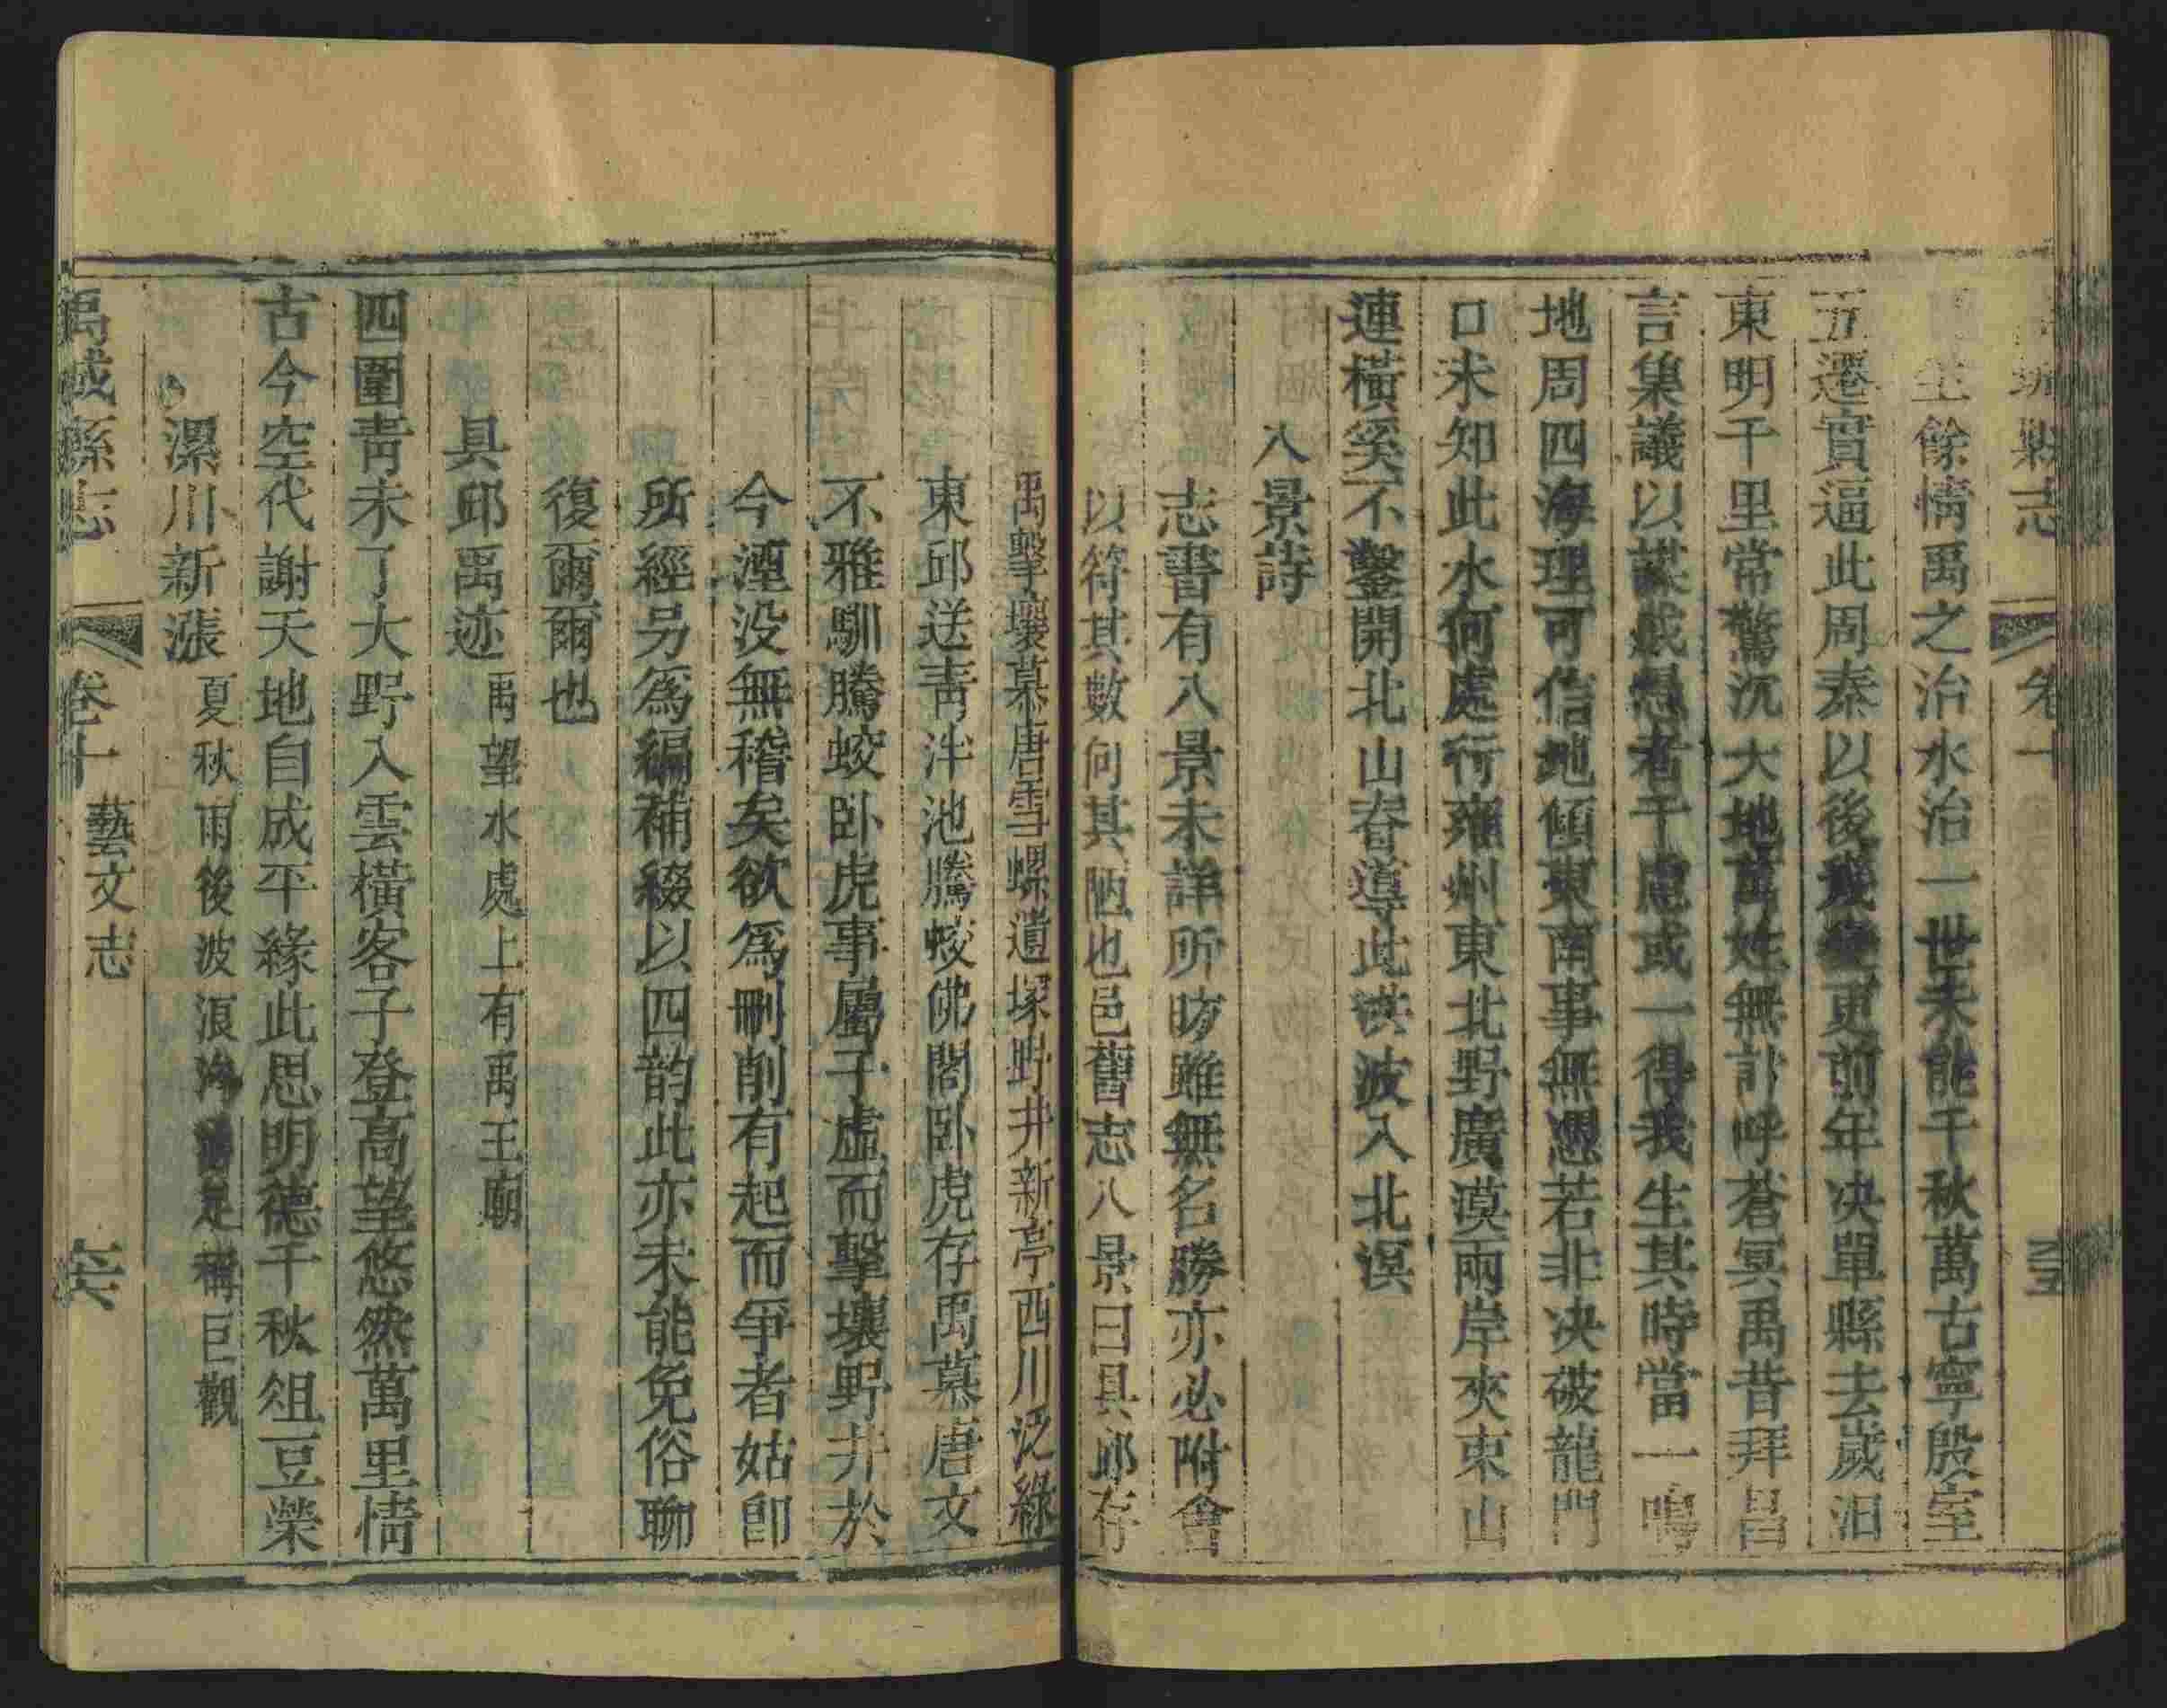 城縣志 卷十
至餘情禹之治水治一世未能千秋萬古寧殷室
五遷實逼此周秦以後幾更前年决單縣去歲汩
東明千里常驚沉大地萬姓無訃呼蒼冥禹昔拜昌
言集議以謀截愚者千慮或一得我生其時當一鳴
地周四海理可信地傾東南事無憑若非决破龍門
口未知此水何處行雍州東北野廣漠兩岸夾束山
連橫奚不鑿開北山脊導此洪波入北溟
八景詩
志書有八景未詳所昉雖無名勝亦必附會
以符其數何其陋也邑舊志八景曰具邱存
禹擊壤慕唐雪螺遺塚野井新亭西川泛綠
東邱送青泮池騰蛟佛閣卧虎存禹慕唐文
不雅馴騰蛟卧虎事屬子虛而擊壤野井於
今湮没無稽矣欲爲刪削有起而爭者姑卽
所經另爲編補綴以四韵此亦未能免俗聊
復爾爾也
具邱禹迹 禹望水處上有禹王廟
四圍青未了大野入雲橫客子登高望悠然萬里情
古今空代謝天地自成平緣此思明德千秋俎豆榮
漯川新漲 夏秋雨後波浪足稱巨觀
禹城縣志 卷十 藝文志